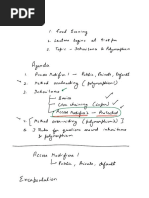 1. Good Evening
2. Lecture begins at 9:05 pm
3. Topic – Inheritance & Polymorphism
Agenda
1. Access Modifiers 1 – Public, Private, Default
2. Method overloading (Polymorphism)
3. Inheritance
Basics
Constr chaining (super)
Access Modifiers – Protected
4. Method over-riding (polymorphism 2)
5. Rules for questions around inheritance
& polymorphism
Access Modifiers 1
Public, Private, default
Encapsulation